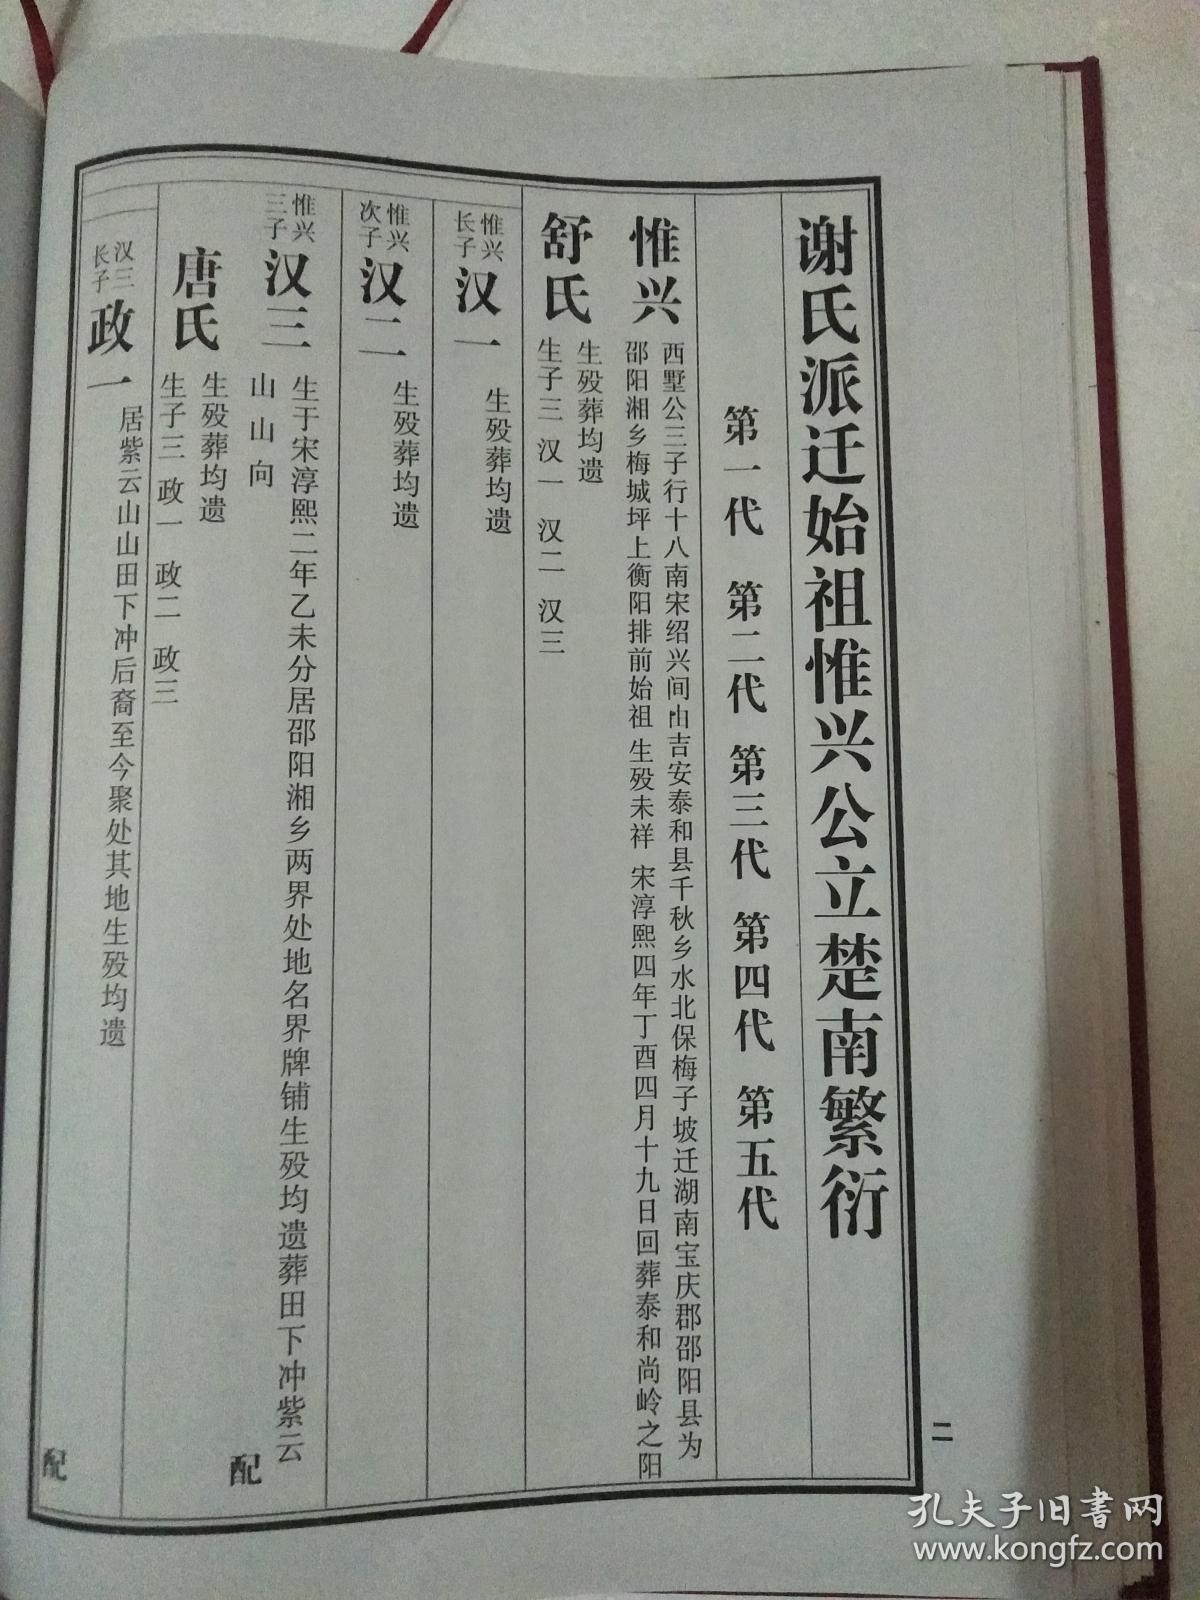 谢氏派迁始祖惟兴公立楚南繁衍
第一代 第二代 第三代 第四代 第五代
惟兴
西墅公三子行十八南宋绍兴间由吉安泰和县千秋乡水北保梅子坡迁湖南宝庆郡邵阳县为
邵阳湘乡梅城坪上衡阳排前始祖 生殁未祥 宋淳熙四年丁酉四月十九日回葬泰和尚岭之阳
舒氏
生殁葬均遗
生子三 汉一 汉二 汉三
惟兴
长子
汉一
生殁葬均遗
惟兴
次子
汉二
生殁葬均遗
惟兴
三子
汉三
生于宋淳熙二年乙未分居邵阳湘乡两界处地名界牌铺生殁均遗葬田下冲紫云
山山向
配
唐氏
生殁葬均遗
生子三 政一 政二 政三
汉三
长子
政一
居紫云山山田下冲后裔至今聚处其地生殁均遗
配
二
孔夫子旧书网
www.kongfz.com